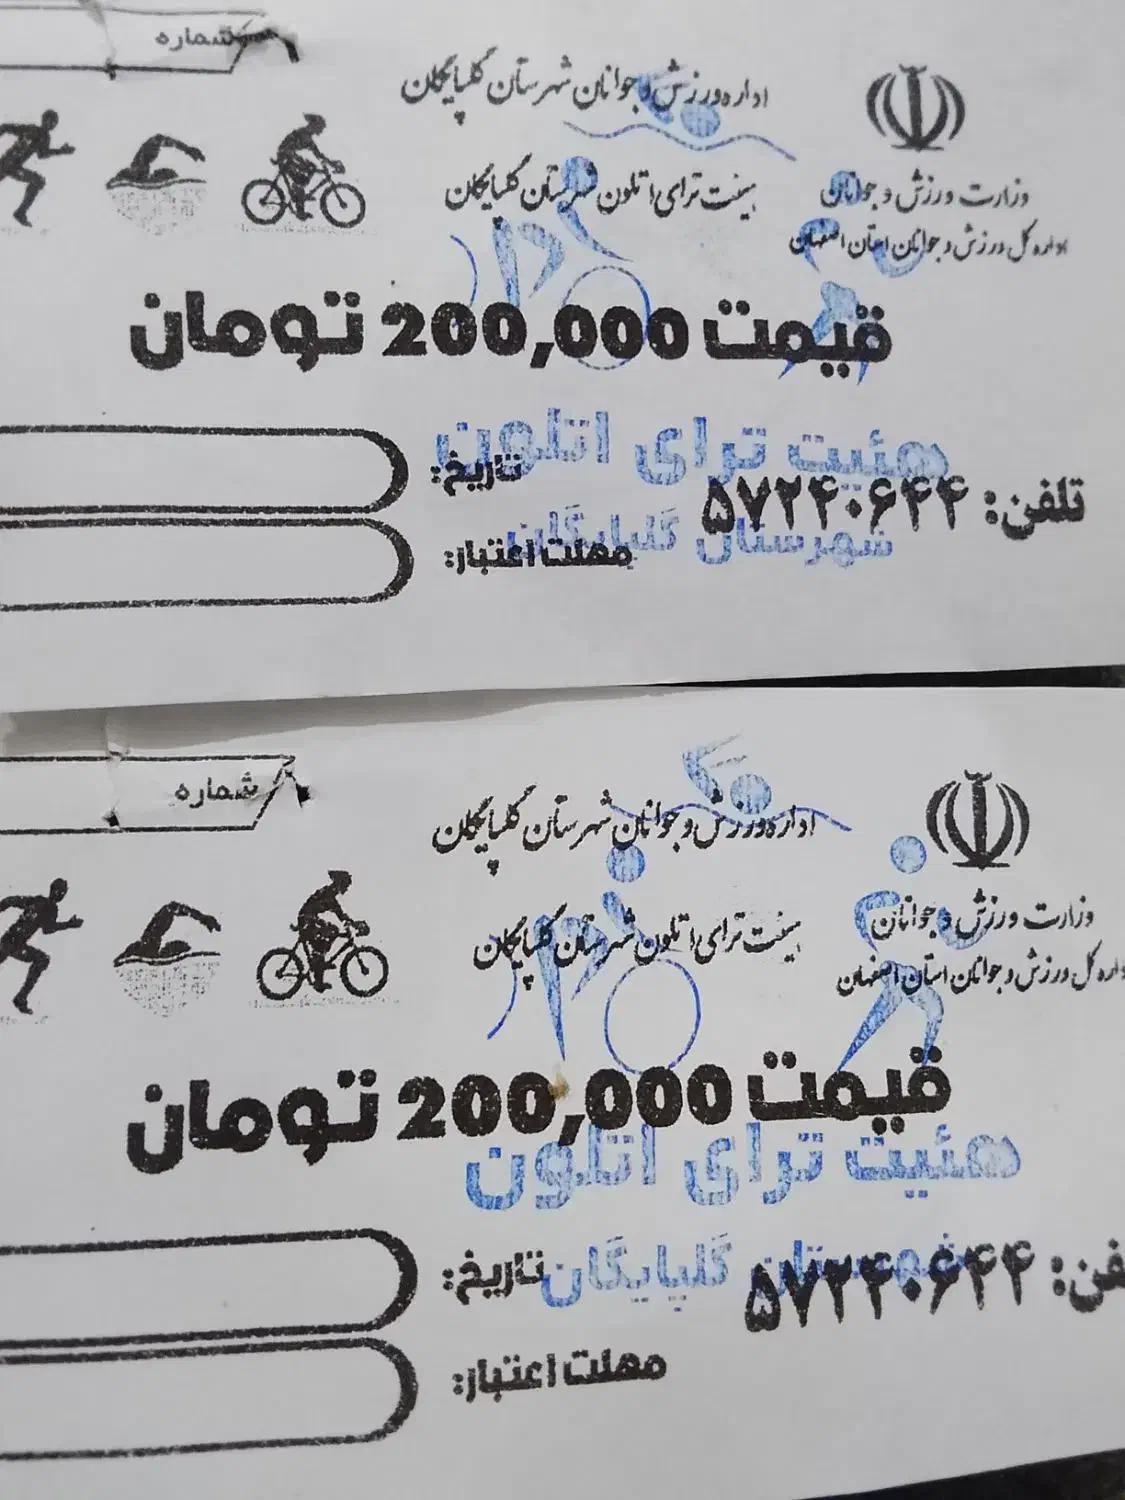 شماره
اداره ورزش و جوانان شهرستان گلپایگان
هیئت ترای اتلون شهرستان گلپایگان
وزارت ورزش و جوانان
اداره کل ورزش و جوانان استان اصفهان
قیمت 200,000 تومان
هئیت ترای اتلون
شهرستان گلپایگان
تاریخ:
تلفن: ۵۷۲۴۰۶۴۴
مهلت اعتبار:
شماره
اداره ورزش و جوانان شهرستان گلپایگان
هیئت ترای اتلون شهرستان گلپایگان
وزارت ورزش و جوانان
اداره کل ورزش و جوانان استان اصفهان
قیمت 200,000 تومان
هئیت ترای اتلون
شهرستان گلپایگان
تاریخ:
فن: ۵۷۲۴۰۶۴۴
مهلت اعتبار: